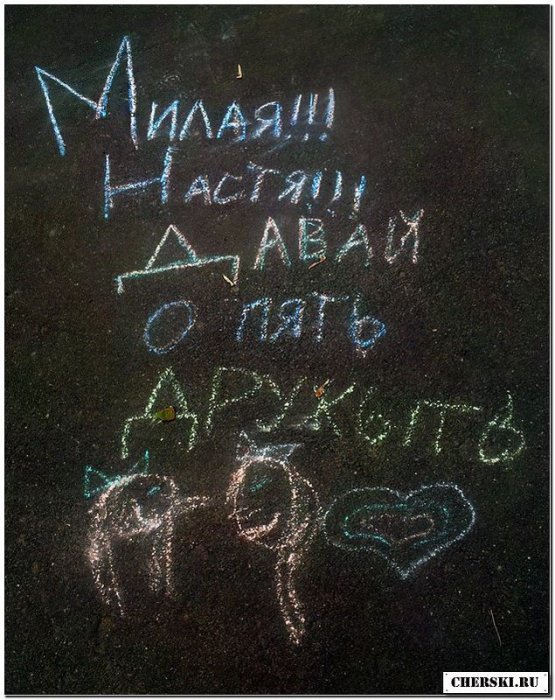 Милая!!!
Настя!!!
Давай
о пять
дружыть
CHERSKI.RU